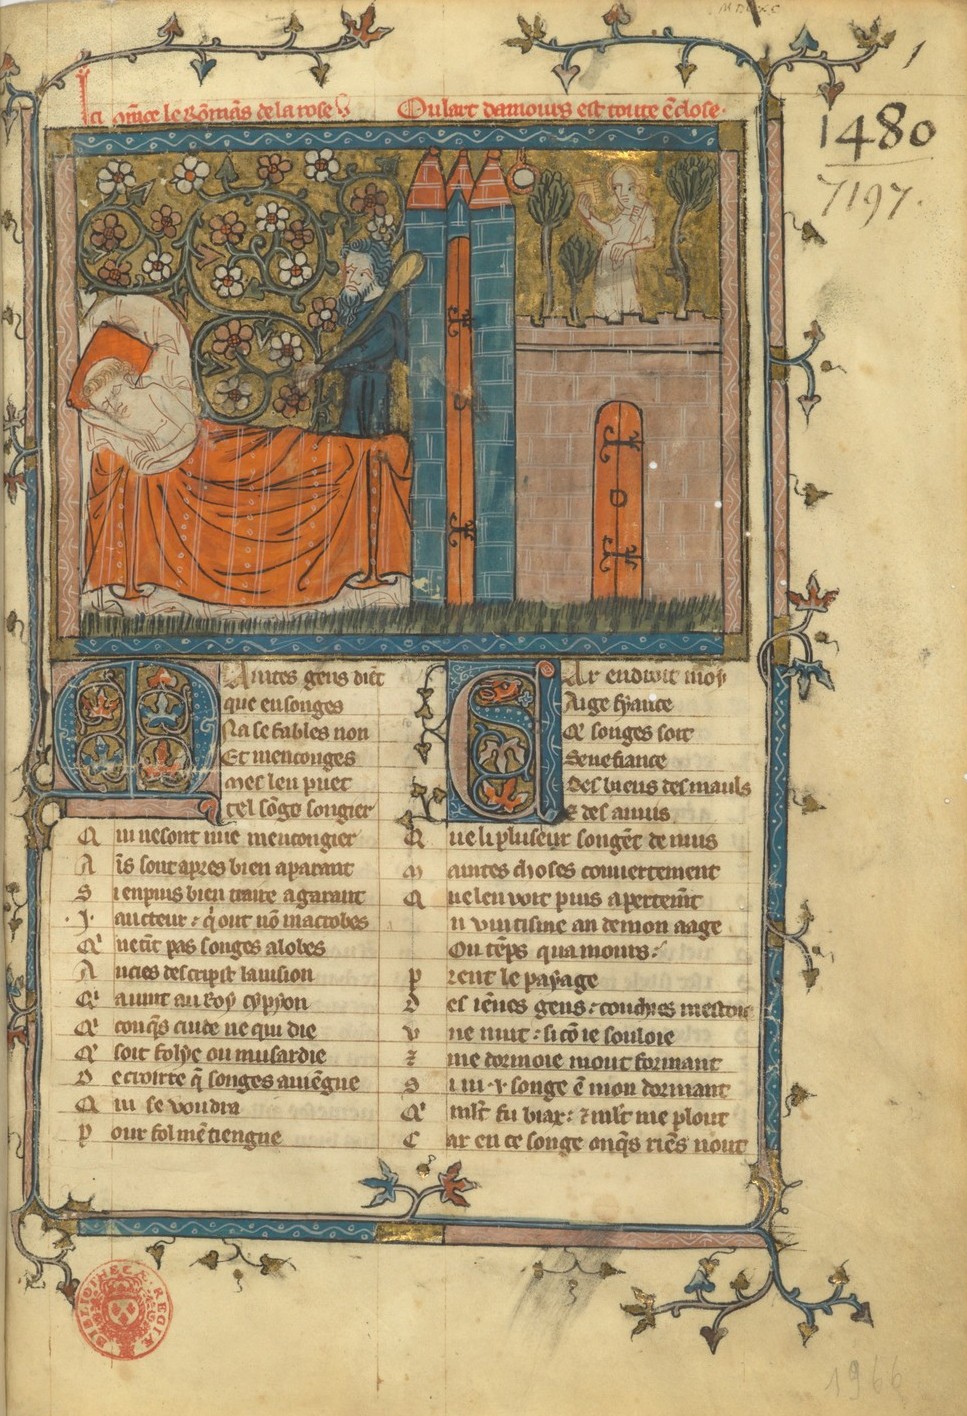 1
1480
7197.
Ici cōmēce le Rōmāns de la rose
Ou lart damours est toute ēclose.
Maintes gens diēt
que en songes
Na se fables non
Et menconges
mes len puet
tel sōge songier
Qui ne sont mie mencongier
Ains sont apres bien aparant
Si en puis bien traire a garant
.J. aucteur: q̄ ont nō macrobes
Que tiēt pas songes a lobes
Ancies descript la vision
Qavint au Roy cypyon
Qconq̄s cuide ne qui die
Qsoit folye ou musardie
De croirre q̄ songes aviēgne
Qui se voudra
Pour fol mē tiengne
Car endroit moy
Ai ge fiance
Q̄ songes soit
Senefiance
Des biens des mauls
E des anuis
Que li pluseur songēt de nuis
Maintes choses couvertement
Que len voit puis apertemēt
n vintisme an de mon aage
Ou tēps qu amours:
Prent le payage
Des iēnes gens: couchies mestoie
Vne nuit: si cō ie souloie
⁊ me dormoie mout formant
Si vi .v songe ē mon dormant
Q̄ mlt fu biax: ⁊ mlt me plout
Car en ce songe onq̄s riēs nout
BIBLIOTHECÆ REGIÆ
1966